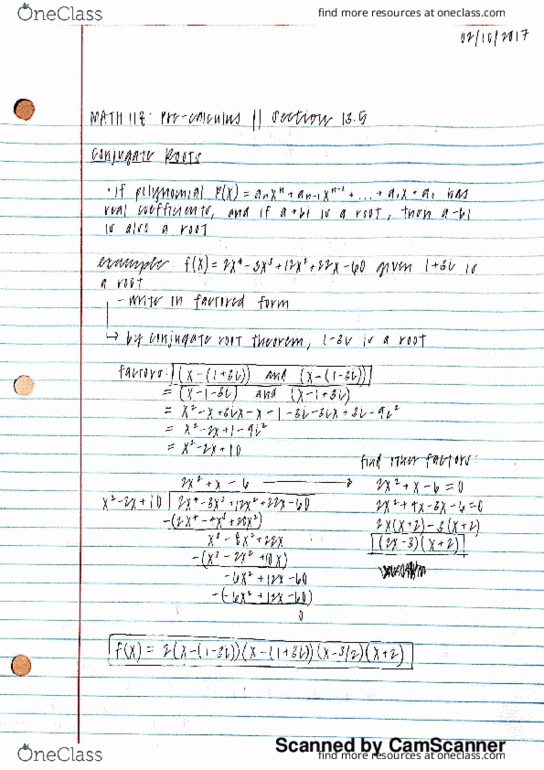 OneClass
find more resources at oneclass.com
02/10/2017
MATH 118: Pre-calculus || Section 13.5
Conjugate Roots
• if polynomial P(X) = aₙxⁿ + aₙ₋₁xⁿ⁻¹ + ... + a₁x + a₀ has
real coefficients, and if a+bi is a root, then a-bi
is also a root
example: f(x) = 2x⁴-3x³+12x²+22x-60 given 1+3i is
a root
- write in factored form
↳ by conjugate root theorem, 1-3i is a root
factors: (x-(1+3i)) and (x-(1-3i))
= (x-1-3i) and (x-1+3i)
= x²-x+3ix-x+1-3i-3ix+3i-9i²
= x²-2x+1-9i²
= x²-2x+10
find other factors:
2x²+x-6 →
x²-2x+10 | 2x⁴-3x³+12x²+22x-60
-(2x⁴-4x³+20x²)
x³-8x²+22x
-(x³-2x²+10x)
-6x²+12x-60
-(-6x²+12x-60)
0
2x²+x-6=0
2x²+4x-3x-6=0
2x(x+2)-3(x+2)
(2x-3)(x+2)
f(x) = 2(x-(1-3i))(x-(1+3i))(x-3/2)(x+2)
Scanned by CamScanner
OneClass
find more resources at oneclass.com